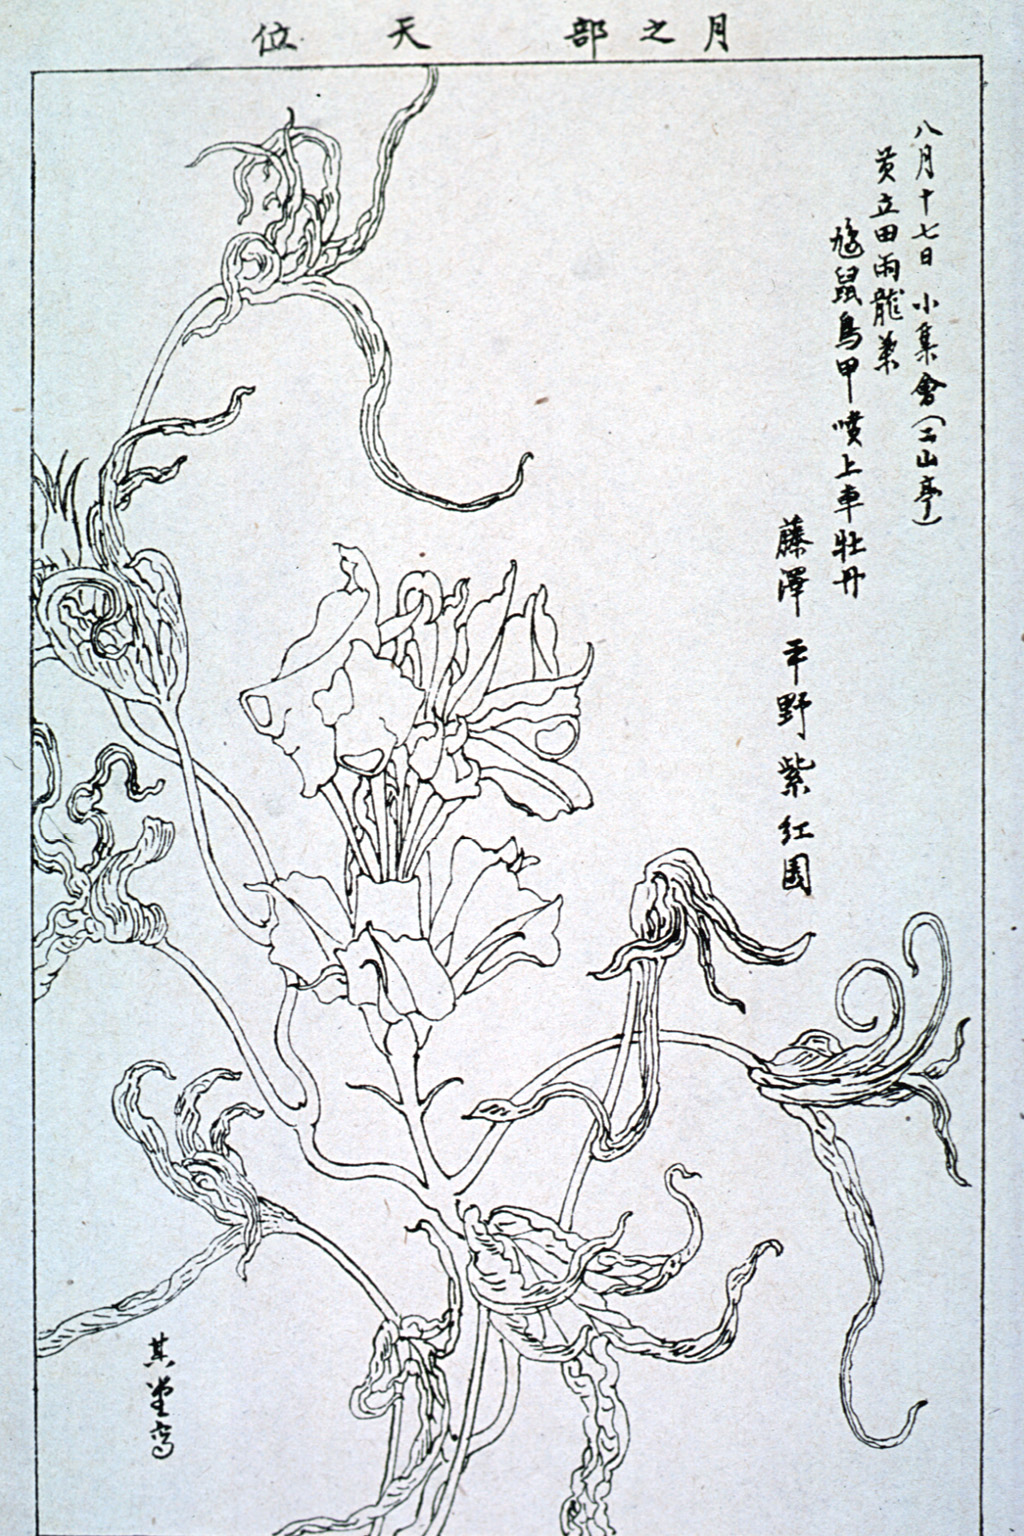 月之部 天位
八月十七日 小集會(山亭)
黄立田雨龍葉
鼠鳥甲噴上車牡丹
藤澤 平野紫紅園
其堂寫